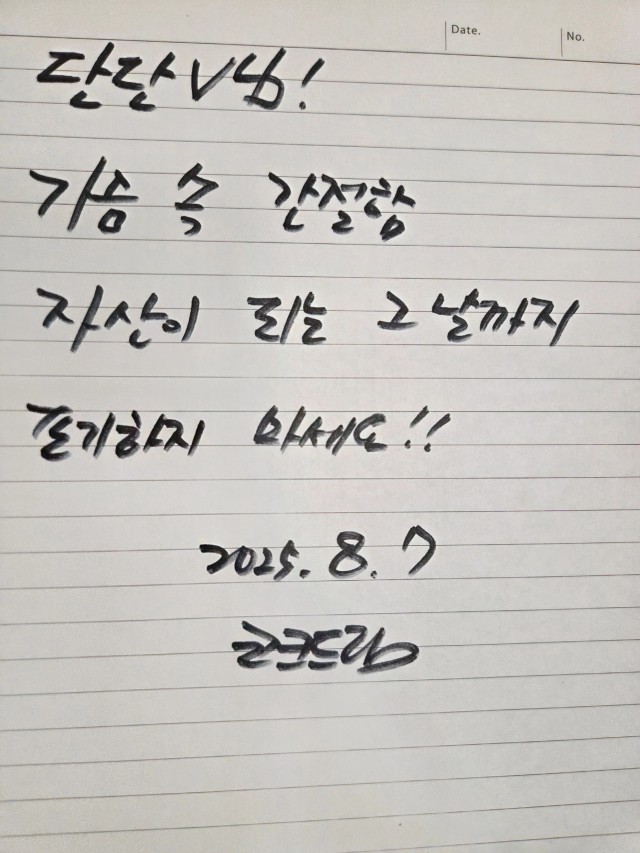 Date. No.
단단V님!
가슴 속 간절함
자산이 되는 그 날까지
포기하지 마세요!!
2025. 8. 7